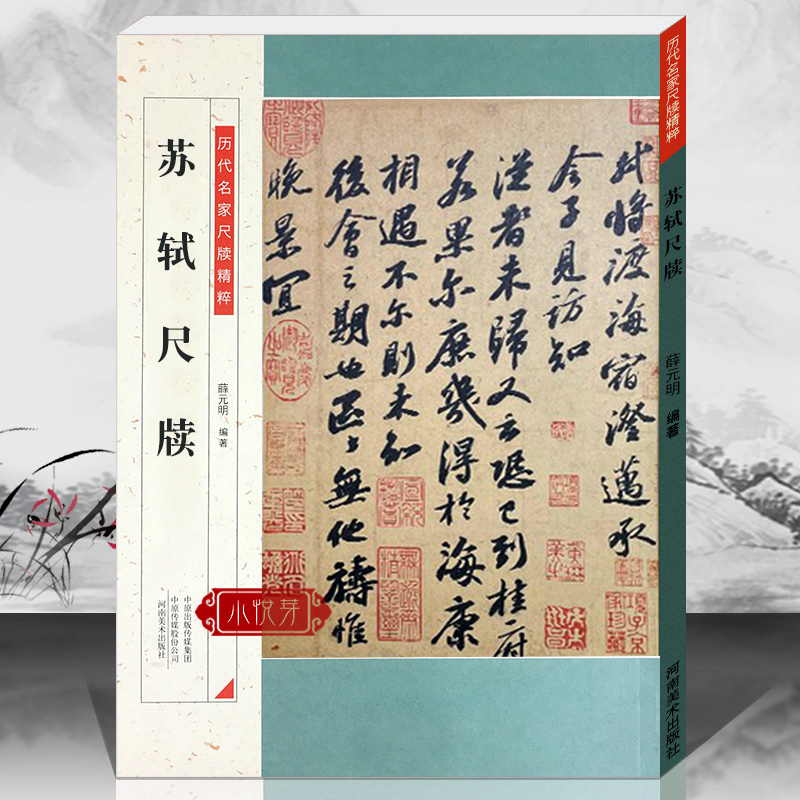 历代名家尺牍精粹
苏轼尺牍
薛元明 编著
中原出版传媒集团
中原传媒股份公司
河南美术出版社
小悦芽
軾將渡海宿澄邁承
令子見訪知
從者未歸又云恐已到桂府
若果尔庶幾得於海康
相遇不尔則未知
後會之期也區々無他禱惟
晚景宜
历代名家尺牍精粹
苏轼尺牍
薛元明 编著
河南美术出版社